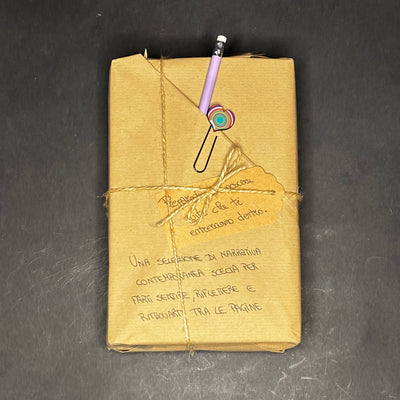 che ti
entreranno dentro.
UNA SELEZIONE DI NARRATIVA
CONTEMPORANEA SCELTA PER
FARTI SENTIRE, RIFLETTERE E
RITROVARTI TRA LE PAGINE